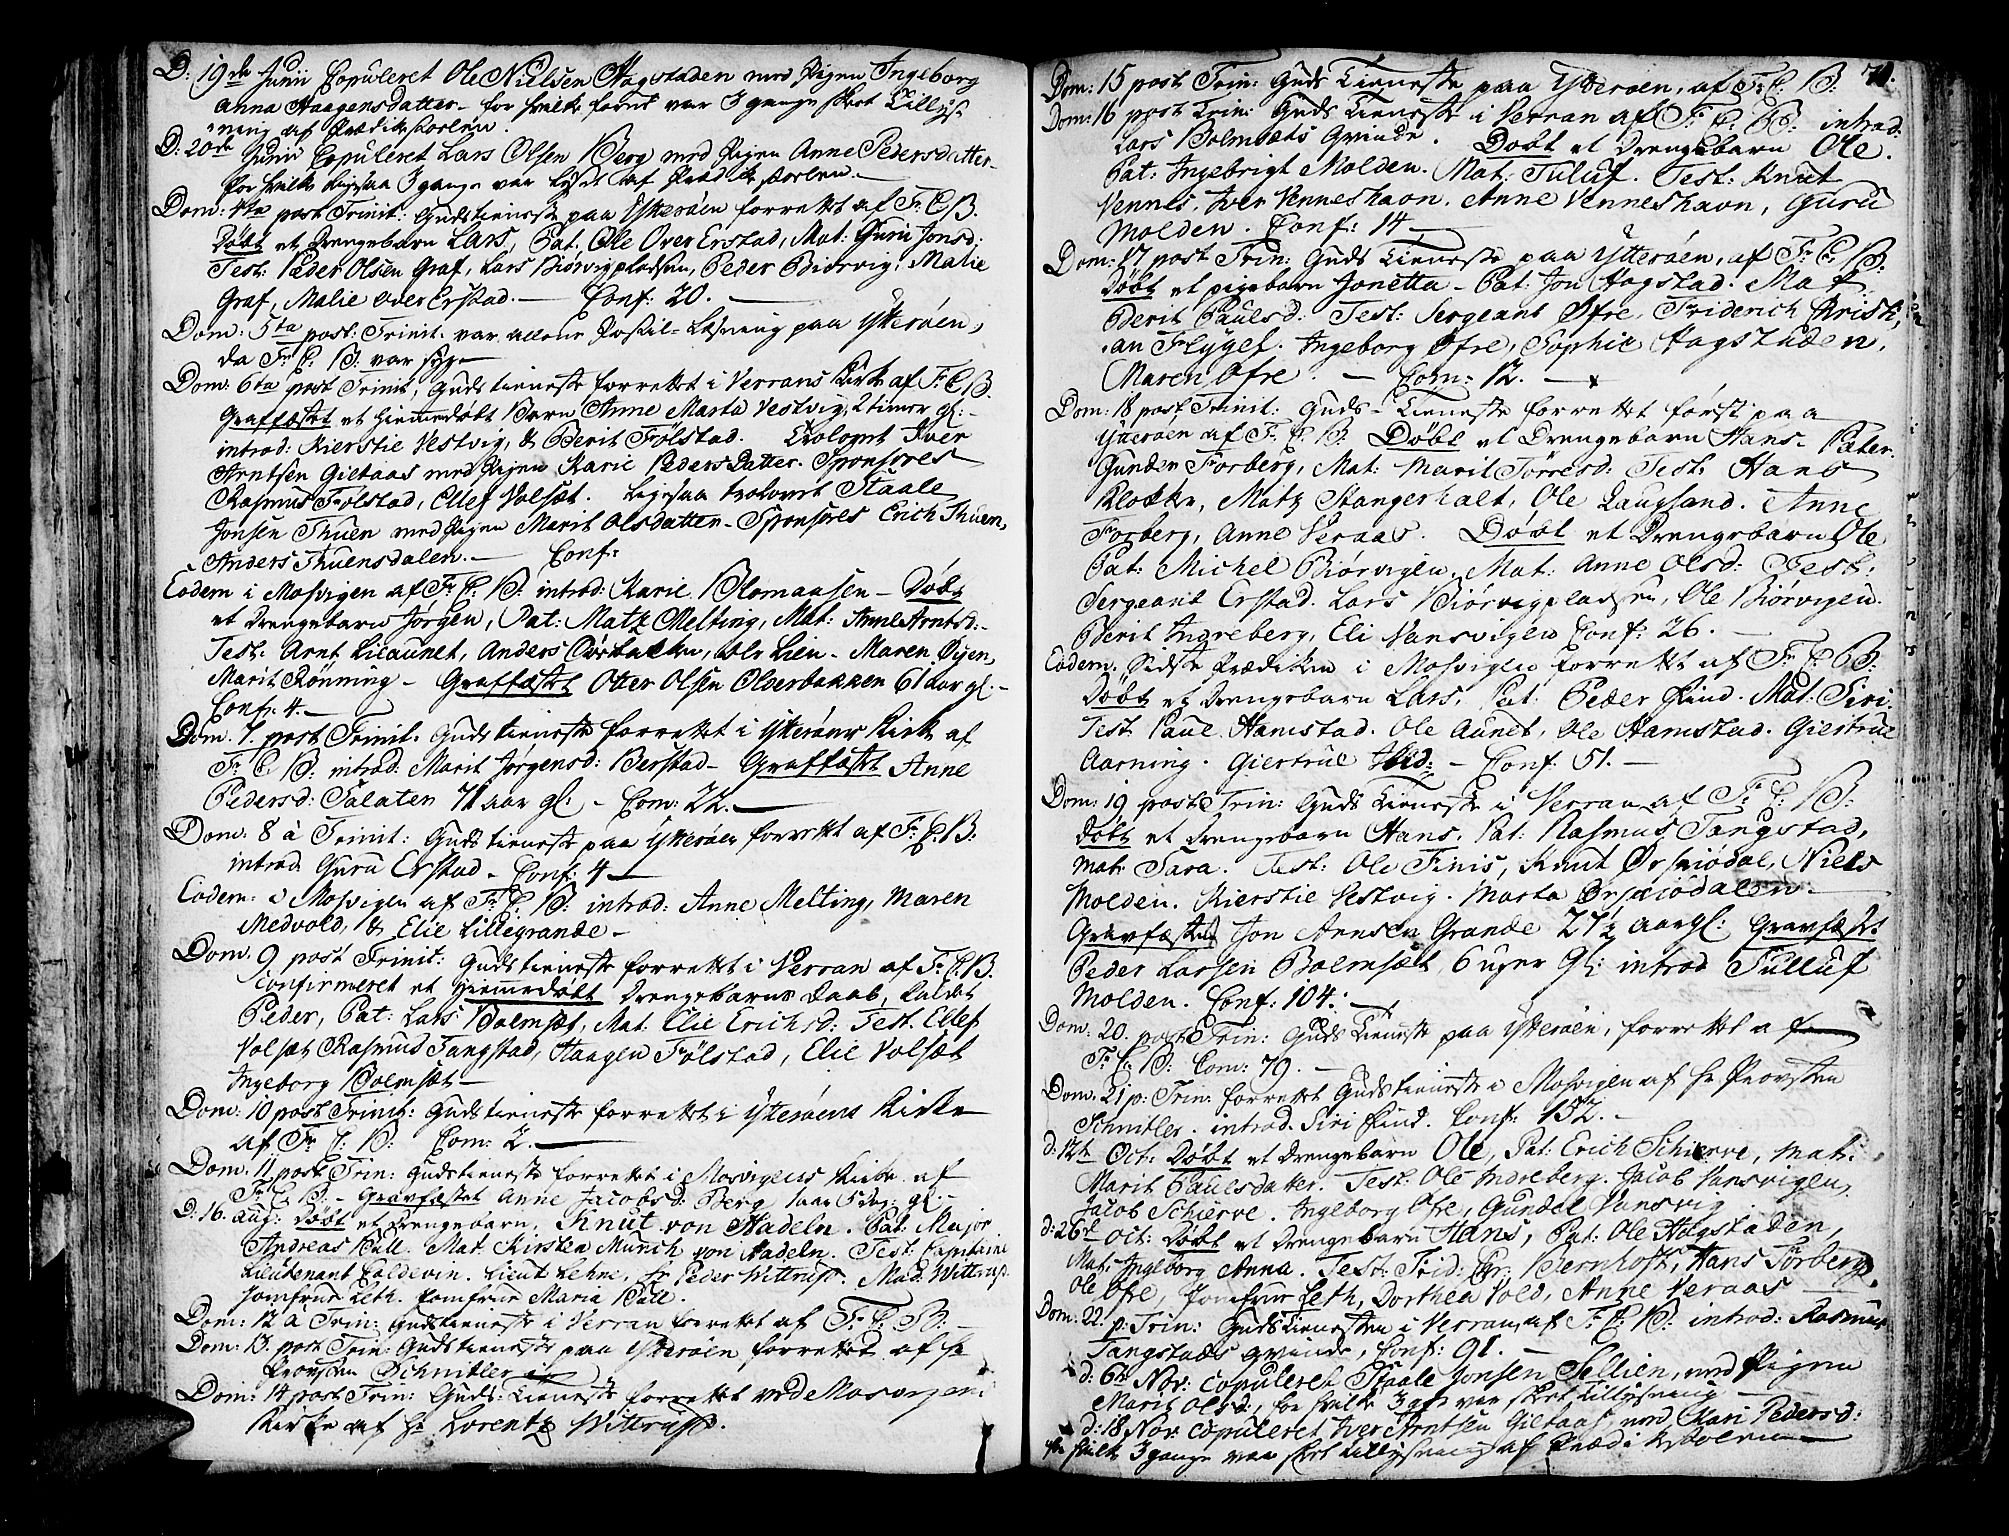 D: 19de Junii Copuleret Ole Nielsen Hagstaden med Pigen Ingeborg
Anna Haagensdatter - for hvilke forud var 3 gange skeet Tillys-
ning af Prædikestoelen.
D: 20de Junii Copuleret Lars Olsen Berg med Pigen Anne Pedersdatter
for hvilke ligesaa 3 gange var lyst af Prædikestoelen. -
Dom: 4ta post Trinit: Gudstieneste paa Ytterøen forrettet af Fr: C: B.
Døbt et Drengebarn Lars, Pat. Ole Over Erstad, Mat: Guru Jonsd:
Test: Peder Olsen Graf, Lars Biørvigpladsen, Peder Biørvig, Malie
Graf, Malie Over Erstad. - Conf: 20. -
Dom: 5ta post: Trinit. var allene Postil-Læsning paa Ytterøen,
da Fr: C: B: var syg -
Dom: 6ta post Trinit, Gudstieneste forrettet i Verrans Kirke af Fr: C: B.
Graffæstet et hiemmedøbt Barn Anne Marta Vestvig, 2 timer gl: -
introd: Kierstie Vestvig, & Berit Følstad. Trolovet Iver
Arntsen Giltaas med Pigen Karie Peders Datter. Sponsores
Rasmus Følstad, Ellef Volsæt. Ligesaa trolovet Staale
Jonsen Thuen med Pigen Marit Olsdatter - Sponsores Erich Thuen,
Anders Thuensdalen. - Conf:
Eodem i Mosvigen af Fr: C: B: introd: Karie Blomaasen - Døbt
et Drengebarn Jørgen, Pat: Matz Melting, Mat: Anne Arntsd: -
Test: Arnt Lieaunet, Anders, Ole Lien - Maren Øyen,
Marit Rønning - Graffæstet Otter Olsen Olverbakken 61 Aar gl. -
Conf: 4. -
Dom. 7 post Trinit. Gudstieneste forrettet i Ytterøens Kirke af
Fr. C. B: introd: Marit Jørgensd: Berstad - Graffæstet Anne
Pedersd: Salaten 71 aar gl: - Com: 22. -
Dom: 8 à Trinit: Gudstieneste paa Ytterøen forrettet af Fr: C: B:
introd Guru Erstad - Conf: 4 -
Eodem: i Mosvigen af Fr: C: B: introd: Anne Melting, Maren
Medvold, & Elie Lillegrande -
Dom. 9 post Trinit: Gudstieneste forrettet i Verran af Fr: C: B.
Confirmeret et hjemmedøbt Drengebarns Daab, kaldet
Peder, Pat: Lars Bolmsæt, Mat: Elie Erichsd: Test. Ellef
Volsæt Rasmus Tangstad, Haagen Følstad, Elie Volsæt
Ingeborg Bolmsæt -
Dom: 10 post Trinit: Gudstieneste forrettet i Ytterøens Kirke
af Fr C: B: Com: 2. -
Dom: 11 post Trin: Gudstieneste forrettet i Mosvigens Kirke af
Fr: C: B: - Gravfæstet Anne Jacobsd: Berg 1 aar 5 Dag: gl. -
D: 16. Aug: Døbt et Drengebarn, Knut von Hadeln. Pat: Major
Andreas Bull. Mat. Kirsten Munch von Hadeln. Test: Capitaine
Lieutenant Coldevin. Lieut Lehne, Hr Peder Wittrup. Mad. Wittrup.
Jomfrue Leth. Jomfrue Maria Bull.
Dom: 12 à Trin: Gudstieneste i Verran forrettet af Fr: C: B: -
Dom: 13 post Trin: Gudstieneste paa Ytterøen forrettet af Hr
Provsten Schnitler
Dom: 14 post Trin: Guds-Tieneste forrettet ved Mosvigens
Kirke af Hr Lorentz Wittrup.
71.
Dom: 15 post Trin: Guds Tieneste paa Ytterøen, af Fr: C: B.
Dom: 16 post Trin: Guds Tieneste i Verran af Fr: C: B: introd:
Lars Bolmsæts Qvinde. Døbt et Drengebarn Ole.
Pat: Ingebrigt Molden. Mat: Tuluf. Test: Knut
Vennes, Iver Venneshavn. Anne Venneshavn, Guru
Molden. Conf: 14 -
Dom: 17 post Trin: Guds Tieneste paa Ytterøen, af Fr: C: B:
Døbt et pigebarn Jonetta - Pat: Jon Hagstad. Mat
Berit Paulsd: Test: Sergeant Øfre, Friderich Christi-
an Flygel. Ingeborg Øfre, Sophie Hagstaden,
Maren Øfre. - Com: 12. -
Dom: 18 post Trinit: Guds-Tieneste forrettet først paa
Ytterøen af Fr: C: B: Døbt et Drengebarn Hans - Pater
Gunder Forberg, Mat: Marit Torresd: Test: Hans
Klokker, Matz Stangerhalt, Ole Laugsand. Anne
Forberg, Anne Veraas. Døbt et Drengebarn Ole
Pat: Michel Biørvigen. Mat: Anne Olsd: Test:
Sergeant Erstad. Lars Biørvigpladsen, Ole Biørvigen.
Berit Indreberg, Eli Vansvigen Conf: 26. -
Eodem: Sidste Prædiken i Mosvigen forrettet af Fr: C: B:
Døbt et Drengebarn Lars, Pat: Peder Rind. Mat: Siri.
Test Paul Hamstad. Ole Aunet, Ole Hamstad. Giertrue
Aarning. Giertrue ibid: - Conf: 51. -
Dom: 19 post Trin: Guds Tieneste i Verran af Fr: C: B:
Døbt et Drengebarn Hans, Pat: Rasmus Tangstad,
Mat: Sara. Test: Ole Finis, Knut Ørsjødal, Niels
Molden. Kierstie Vestvig. Marta Ørsjødalen. -
Gravfæstet Jon Arnsen Grande 27½ Aar gl: Gravfæstet
Peder Larsen Bolmsæt, 6 uger gl: introd Tulluf
Molden. Conf: 104. -
Dom: 20. post Trin: Guds Tieneste paa Ytterøen, forrettet af
Fr: C: B: Com: 79. -
Dom: 21 p: Trin: forrettet Gudstieneste i Mosvigen af Hr Provsten
Schnitler. introd. Siri Rind. Conf: 152. -
d: 12te Oct: Døbt et Drengebarn Ole, Pat: Erich Schierve, Mat:
Marit Paulsdatter. Test: Ole Indreberg. Jacob Vansvigen,
Jacob Schierve. Ingeborg Øfre, Gundel Vansvig
d: 26de Oct: Døbt et Drengebarn Hans, Pat: Ole Hagstaden,
Mat: Ingeborg Anna. Test: Frid: Chr: Bernhoft, Hans Forberg,
Ole Øfre, Jomfrue Leth, Dorthea Vold, Anne Veraas -
Dom: 22. p: Trin: Guds Tienesten i Verran, af Fr: C: B: introd: Rasmus
Tangstads Qvinde, Conf: 91. -
d: 6te Nov: Copuleret Staale Jonsen Sellien, med Pigen
Marit Olsd, for hvilke 3 gr. var skeet tillysning -
d: 18 Nov: Copuleret Iver Arntsen Giltaas, med Kari Pedersd:
for hvilke 3 gange var skeet tillysning af Prædikestolen -